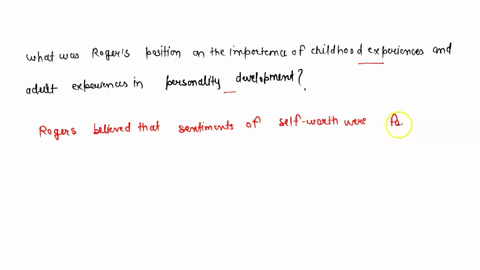 what was Roger's position on the importence of childhood experiences and
adult experiences in personality development?
Rogers believed that sentiments of self-worth were